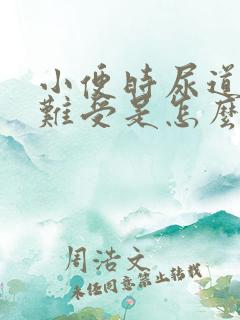 小便時尿道
難受是怎麽
周浩文
未经同意禁止转载